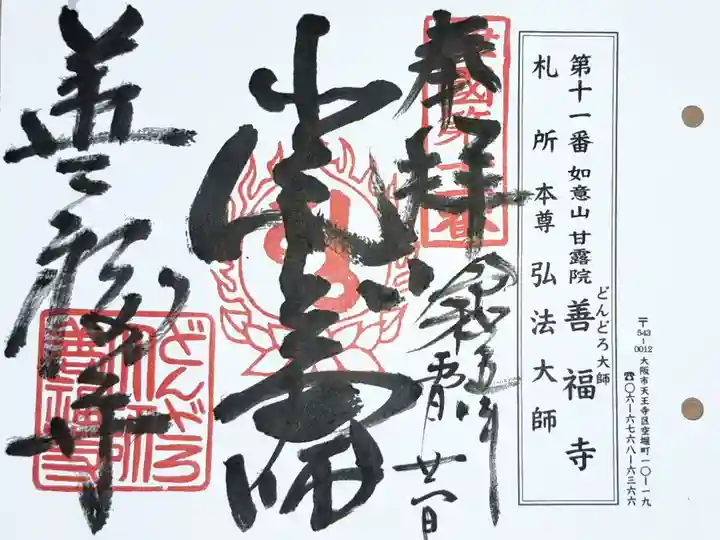 第十一番 如意山 甘露院 善福寺
どんどろ大師
札所本尊 弘法大師
〒543-0012 大阪市天王寺区空堀町一〇-一九
☎〇六-六七六八-六三六六
奉拝
令和五年
廿一日
善福寺
どんどろ
大師
善福寺